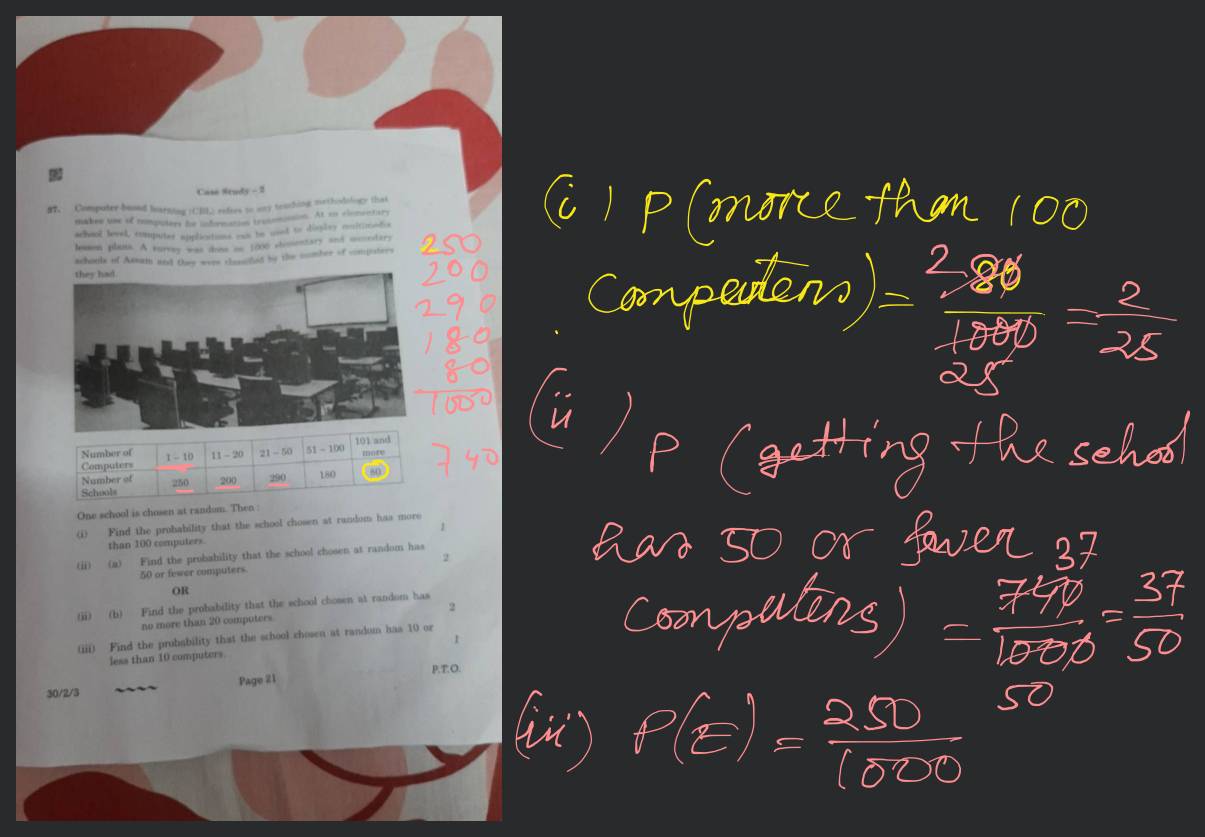 Case Study – 2
37. Computer-based learning (CBL) refers to any teaching methodology that
makes use of computers for information transmission. At an elementary
school level, computer applications can be used to display multimedia
lesson plans. A survey was done on 1000 elementary and secondary
schools of Assam and they were classified by the number of computers
they had.
250
200
290
180
80
1000
740
Number of Computers 1 – 10 11 – 20 21 – 50 51 – 100 101 and more
Number of Schools 250 200 290 180 80
One school is chosen at random. Then :
(i) Find the probability that the school chosen at random has more
than 100 computers. 1
(ii) (a) Find the probability that the school chosen at random has
50 or fewer computers. 2
OR
(ii) (b) Find the probability that the school chosen at random has
no more than 20 computers. 2
(iii) Find the probability that the school chosen at random has 10 or
less than 10 computers. 1
P.T.O.
30/2/3 Page 21
(i) P(more than 100
computers) = 2 80/1000 25 = 2/25
(ii) P (getting the school
has 50 or fewer
computers) = 37 740/1000 50 = 37/50
(iii) P(E) = 250/1000